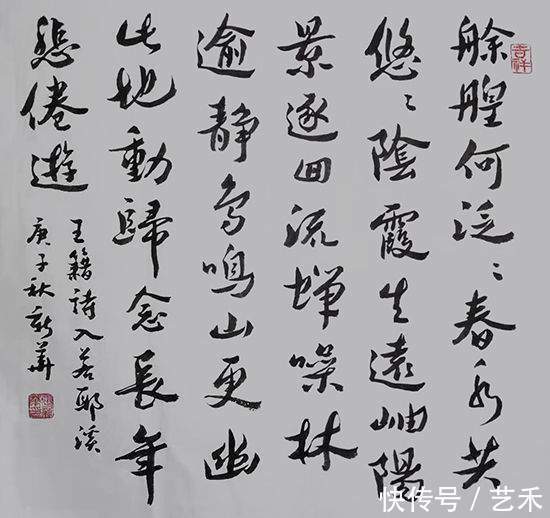 吉祥
艅艎何泛〻春水共
悠〻陰霞生遠岫陽
景逐回流蟬噪林
逾靜鳥鳴山更幽
此地動歸念長年
悲倦遊
王籍詩入若耶溪
庚子秋新華
快传号 / 艺禾